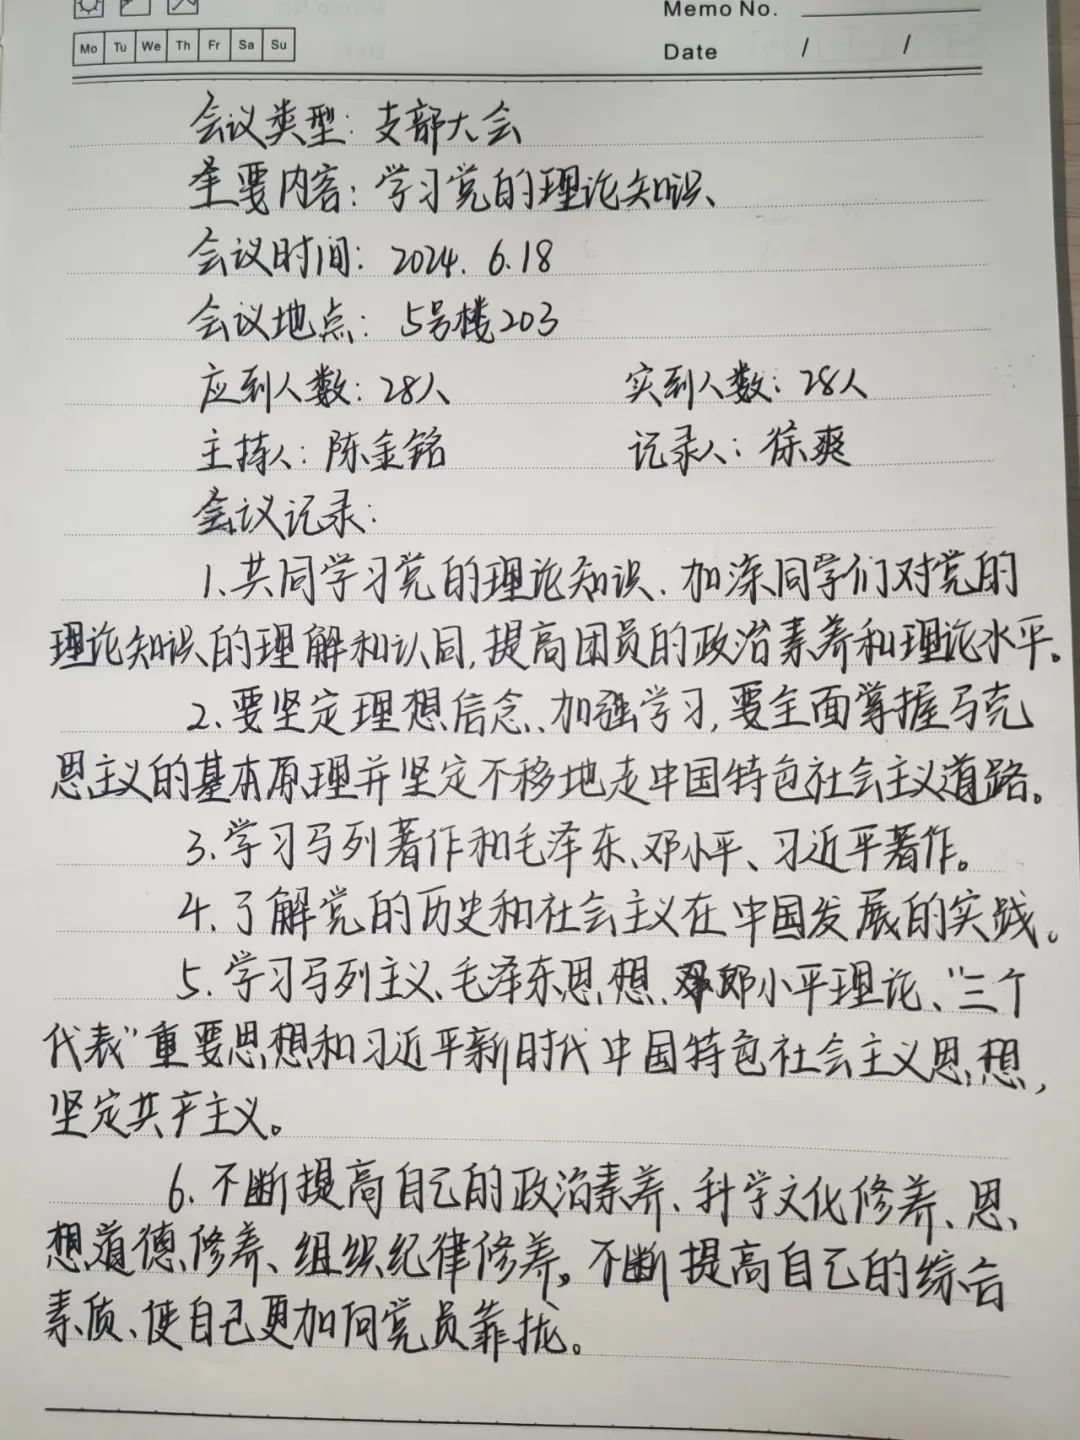 Memo No.
Mo Tu We Th Fr Sa Su
Date / /
会议类型：支部大会
主要内容：学习党的理论知识、
会议时间：2024.6.18
会议地点：5号楼203
应到人数：28人 实到人数：28人
主持人：陈金铭 记录人：徐爽
会议记录：
1.共同学习党的理论知识.加深同学们对党的
理论知识的理解和认同,提高团员的政治素养和理论水平。
2.要坚定理想信念、加强学习,要全面掌握马克
思主义的基本原理并坚定不移地走中国特色社会主义道路。
3.学习马列著作和毛泽东、邓小平、习近平著作。
4.了解党的历史和社会主义在中国发展的实践。
5.学习马列主义、毛泽东思想、邓小平理论、“三个
代表”重要思想和习近平新时代中国特色社会主义思想,
坚定共产主义。
6.不断提高自己的政治素养、科学文化修养、思
想道德修养、组织纪律修养。不断提高自己的综合
素质、使自己更加向党员靠拢。